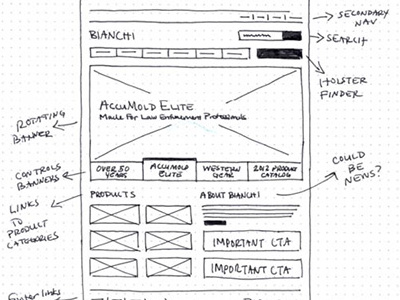 SECONDARY
NAV
BIANCHI
SEARCH
HOLSTER
FINDER
ACCUMOLD ELITE
Made For Law Enforcement Professionals
ROTATING
BANNER
OVER 50
YEARS
ACCUMOLD
ELITE
WESTERN
GEAR
2012 PRODUCT
CATALOG
CONTROLS
BANNERS
COULD
BE
NEWS?
LINKS
TO
PRODUCT
CATEGORIES
PRODUCTS
ABOUT BIANCHI
IMPORTANT CTA
IMPORTANT CTA
Footer links